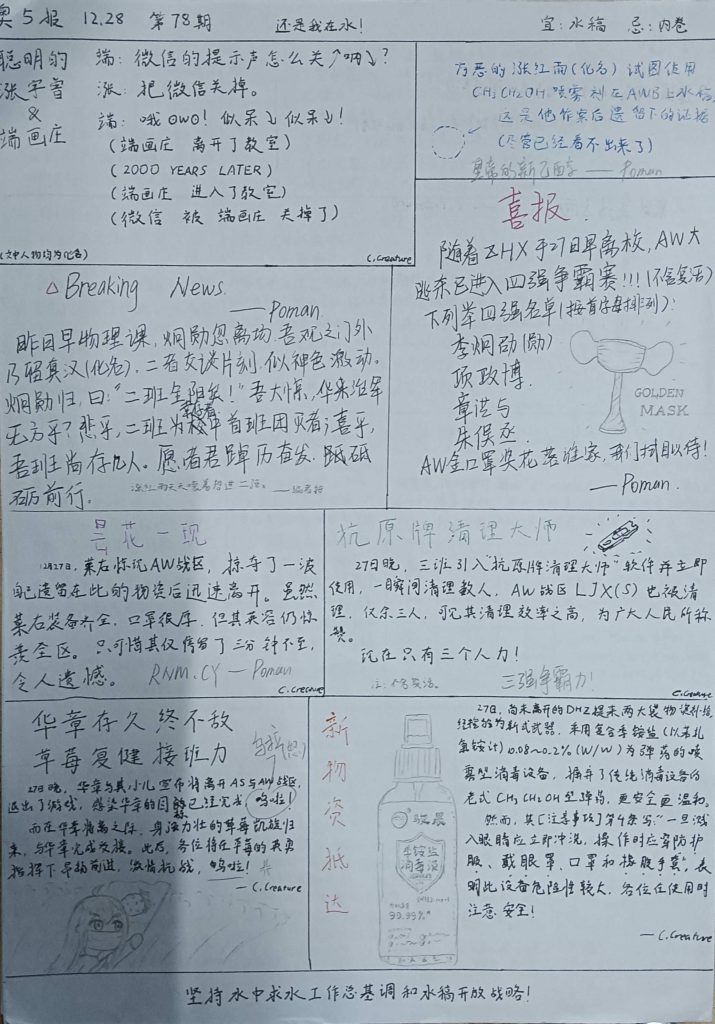 奥5报 12.28 第78期 还是我在水! 宜:水稿 忌:内卷
聪明的
张宇曾
&
端画庄
端:微信的提示声怎么关↗啊↘?
张:把微信关掉。
端:哦OWO!似呆↘似呆↘!
(端画庄 离开了教室)
(2000 YEARS LATER)
(端画庄 进入了教室)
(微信 被 端画庄 关掉了)
(文中人物均为化名)
C.Creature
万恶的涨红雨(化名)试图使用
CH₃CH₂OH喷雾剂在AWB上水稿
这是他作案后遗留下的证据
(尽管已经看不出来了)
异常的新乙醇 —— Poman
喜报
随着ZHX于27日早离校,AW大
逃杀已进入四强争霸赛!!!(不含复活)
下列举四强名单(按首字母排列):
李炯劭(勋)
项政博
章洪与
朱俣丞
GOLDEN
MASK
AW金口罩奖花落谁家,我们拭目以待!
—— Poman.
△Breaking News.
—— Poman
昨日早物理课,炯勋忽离场.吾观之门外
乃留真汉(化名).二者交谈片刻.似神色激动。
炯勋归,曰:“二班全阳矣!”吾大惊,华来治军
无方乎?悲乎,二班为校中首班团灭者;喜乎,
吾班尚存几人。愿诸君踔厉奋发,砥砥
砺前行。
——编者按
昙花一现
12月27日,莱右惊现AW战区,掠夺了一波
自己遗留在此的物资后迅速离开。虽然
莱右装备齐全,口罩很厚,但其英容仍惊
羡全区。只可惜其仅停留了三分钟不至,
令人遗憾。 RNM.CY — Poman
C.Creature
抗原牌清理大师
27日晚,三班引入“抗原牌清理大师”软件并立即
使用,一瞬间清理数人,AW战区LJX(S)也被清
理,仅余三人,可见其清理效率之高,为广大人民所称
赞。
现在只有三个人力!
注:不含复活。 三强争霸力!
C.Creature
华章存久终不敌
草莓复健接班力
27日晚,华章与其小儿宣布将离开AS与AW战区,
退出了游戏,感染华章的目标已经完成(呜啦!)
而在华章将离之际,身强力壮的草莓凯旋归
来,与华章完成交接。此后,各位将在草莓的英勇
指挥下昂扬前进,激情抗战,呜啦!
—— C.Creature
新
物
资
抵
达
骏晨
季铵盐
消毒液
99.99%*
27日,尚未离开的DHZ提来两大袋物资补给,
经检验为新式武器,采用复合季铵盐(以苯扎
氯铵计)0.08~0.2%(W/W)为弹药的喷
雾型消毒设备,摒弃了传统消毒设备的
老式CH₃CH₂OH型弹药,更安全更温和。
然而,其[注意事项]第4条写:“一旦溅
入眼睛应立即冲洗,操作时应穿防护
服、戴眼罩、口罩和橡胶手套”,表
明此设备危险性较大,各位在使用时
注意安全!
—C.Creature
坚持水中求水工作总基调和水稿开放战略!